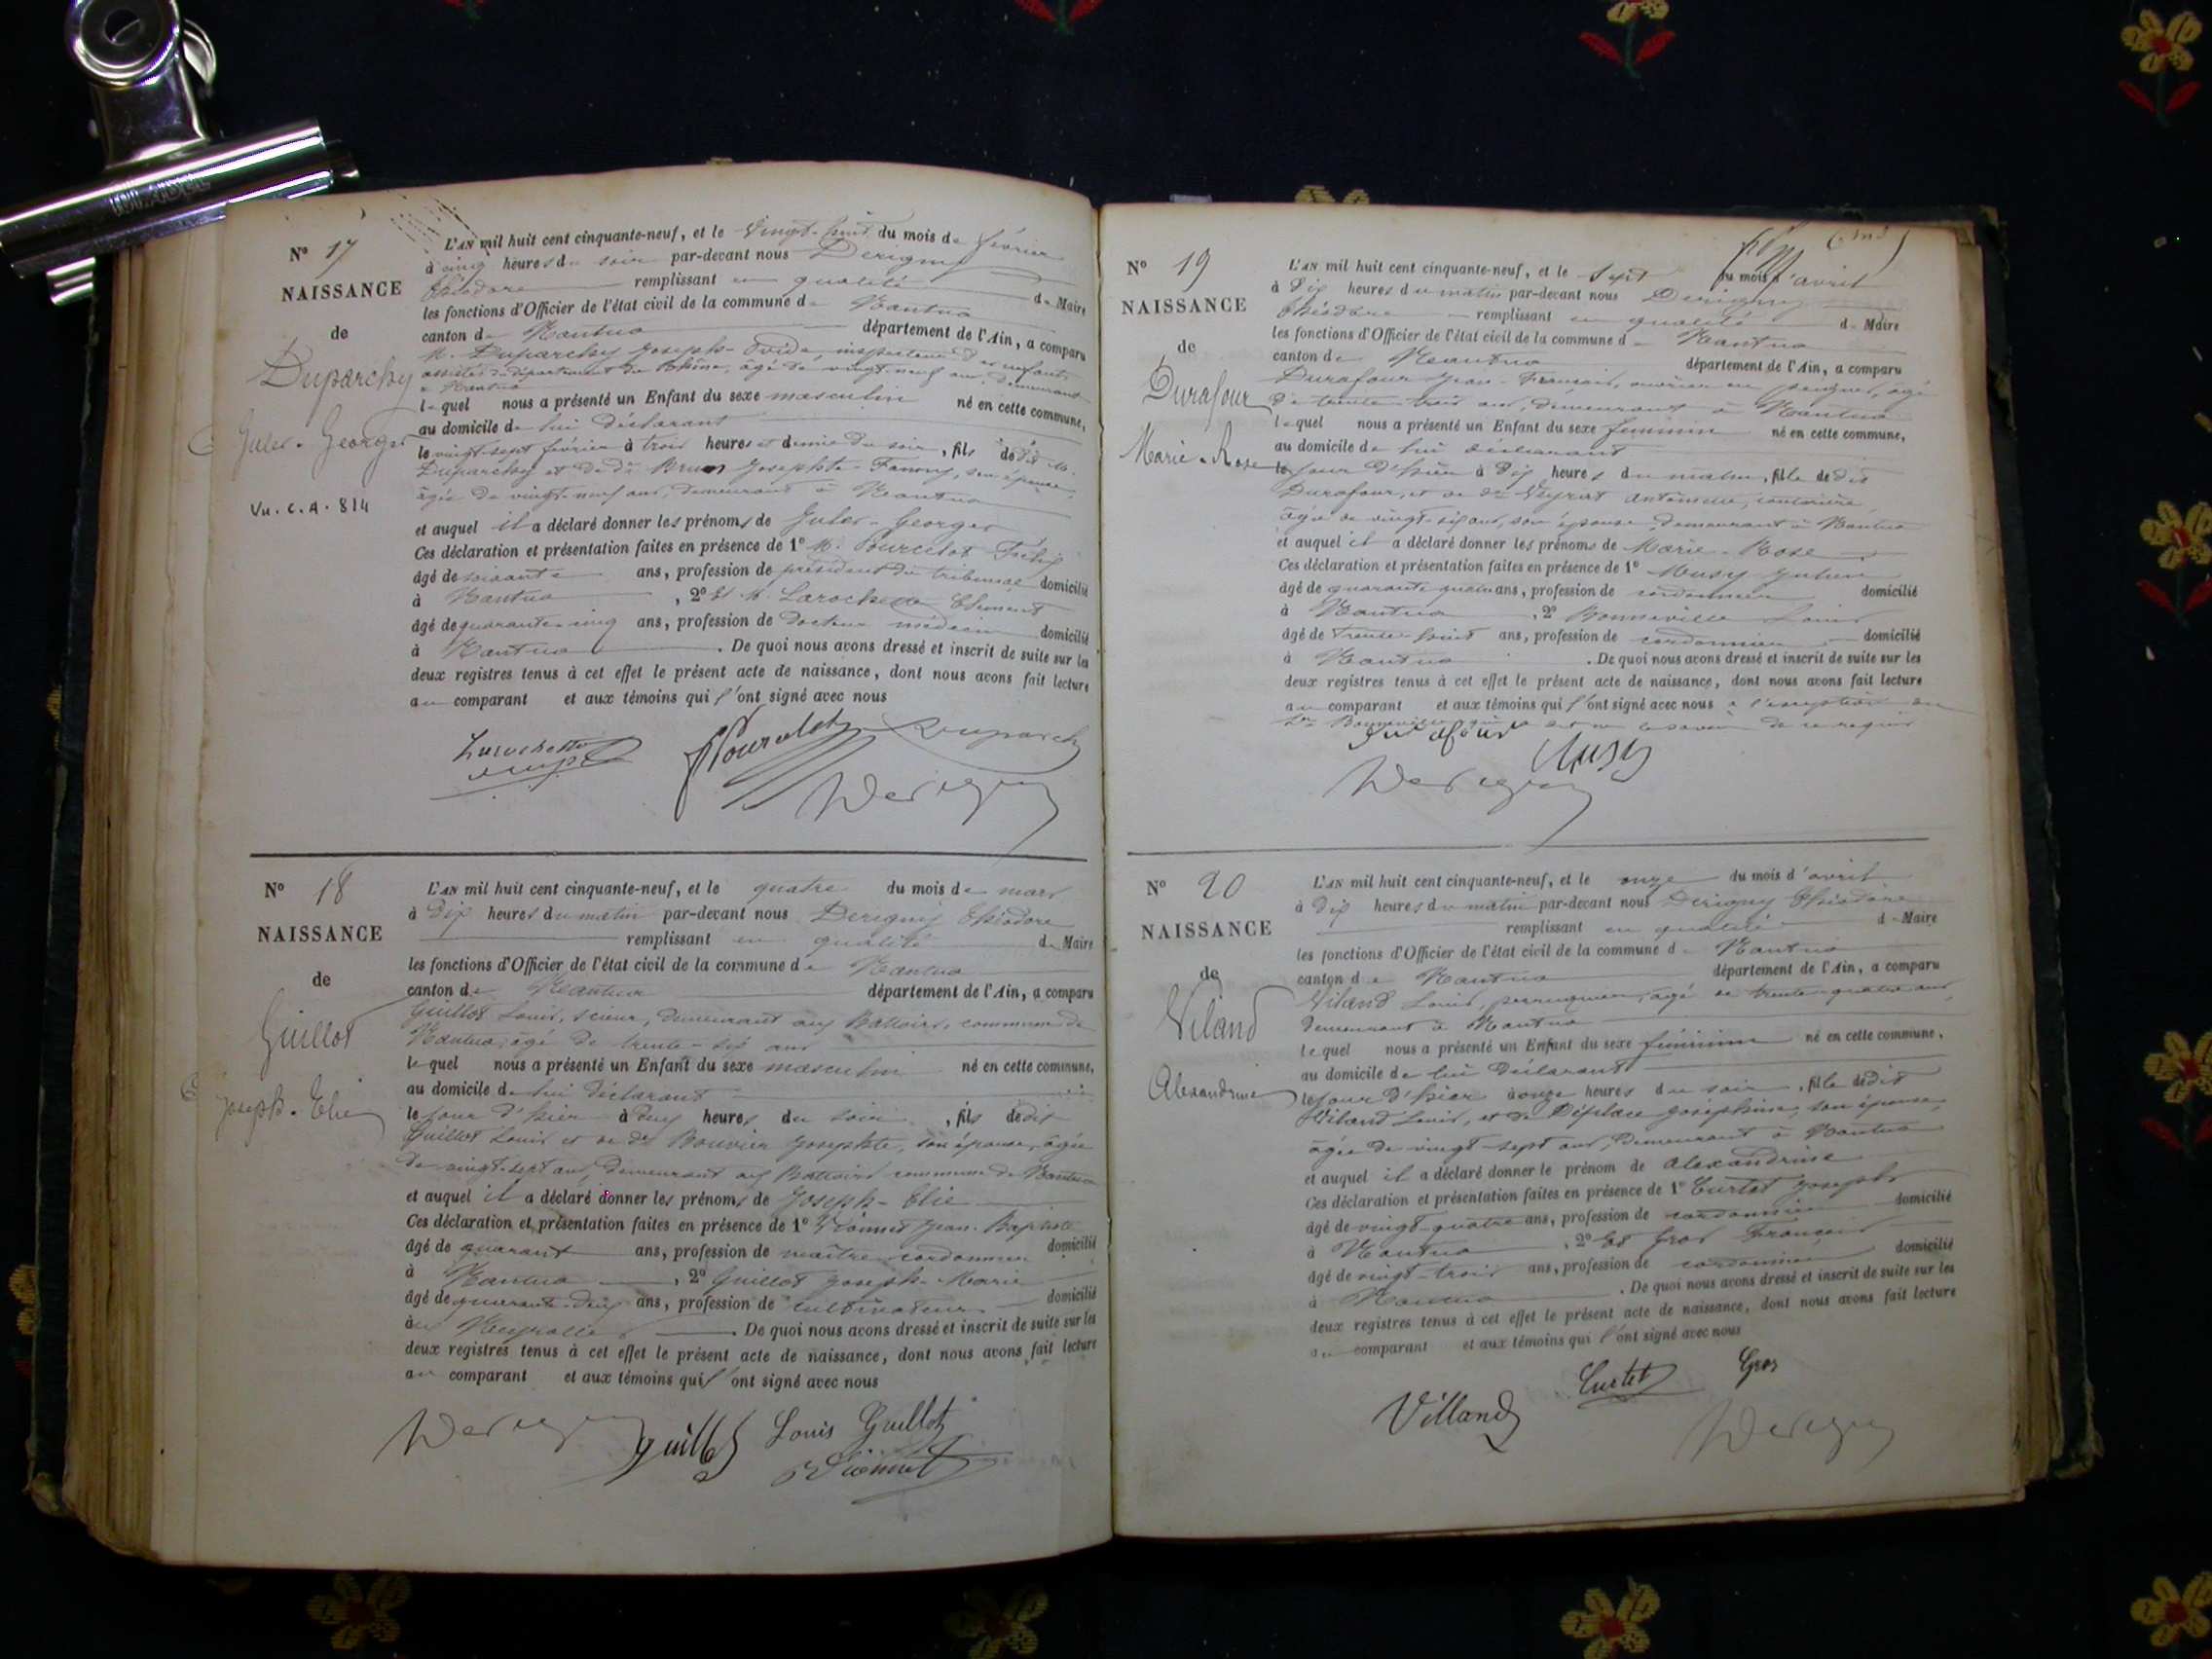 N° 17
NAISSANCE
de
Duparchy
Jules-Georges
Vu. C. A. 814
L'AN mil huit cent cinquante-neuf, et le vingt-huit du mois de février
à cinq heures du soir par-devant nous Derigny
Théodore remplissant en qualité de Maire
les fonctions d'Officier de l'état civil de la commune de Nantua
canton de Nantua département de l'Ain, a comparu
M. Duparchy Joseph-Ovide, inspecteur des enfants
assistés du département du Rhône, âgé de vingt neuf ans, demeurant
à Nantua
lequel nous a présenté un Enfant du sexe masculin né en cette commune,
au domicile de lui déclarant
le vingt-sept février à trois heures et demie du soir, fils de dit M.
Duparchy et de de Brun Josephte-Fanny, son épouse,
âgée de vingt-neuf ans, demeurant à Nantua
et auquel il a déclaré donner les prénoms de Jules-Georges
Ces déclaration et présentation faites en présence de 1° M. Pourcelot Félix
âgé de soixante ans, profession de président du tribunal domicilié
à Nantua, 2° Et M. Larochette Clément
âgé de quarante-cinq ans, profession de docteur médecin domicilié
à Nantua. De quoi nous avons dressé et inscrit de suite sur les
deux registres tenus à cet effet le présent acte de naissance, dont nous avons fait lecture
au comparant et aux témoins qui l'ont signé avec nous
Larochette Pourcelot Duparchy
Derigny
N° 18
NAISSANCE
de
Guillot
Joseph-Elie
L'AN mil huit cent cinquante-neuf, et le quatre du mois de mars
à dix heures du matin par-devant nous Derigny Théodore
remplissant en qualité de Maire
les fonctions d'Officier de l'état civil de la commune de Nantua
canton de Nantua département de l'Ain, a comparu
Guillot Louis, scieur, demeurant aux Battoirs, commune de
Nantua, âgé de trente-six ans
lequel nous a présenté un Enfant du sexe masculin né en cette commune,
au domicile de lui déclarant
le jour d'hier à deux heures du soir, fils dedit
Guillot Louis et de de Bouvier Josephte, son épouse, âgée
de vingt-sept ans, demeurant aux Battoirs commune de Nantua
et auquel il a déclaré donner les prénoms de Joseph-Elie
Ces déclaration et présentation faites en présence de 1° Vionnet Jean-Baptiste
âgé de quarante ans, profession de maître cordonnier domicilié
à Nantua, 2° Guillot Joseph-Marie
âgé de quarante-deux ans, profession de cultivateur domicilié
aux Neyrolles. De quoi nous avons dressé et inscrit de suite sur les
deux registres tenus à cet effet le présent acte de naissance, dont nous avons fait lecture
au comparant et aux témoins qui l'ont signé avec nous
Derigny Guillot Louis Guillot
Vionnet
N° 19
NAISSANCE
de
Durafour
Marie-Rose
L'AN mil huit cent cinquante-neuf, et le sept du mois d'avril
à dix heures du matin par-devant nous Derigny
Théodore remplissant en qualité de Maire
les fonctions d'Officier de l'état civil de la commune de Nantua
canton de Nantua département de l'Ain, a comparu
Durafour Jean-François, ouvrier en peignes, âgé
de trente-trois ans, demeurant à Nantua
lequel nous a présenté un Enfant du sexe féminin né en cette commune,
au domicile de lui déclarant
le jour d'hier à dix heures du matin, fille dedit
Durafour, et de de Veyrat Antoinette, couturière,
âgée de vingt-six ans, son épouse, demeurant à Nantua
et auquel il a déclaré donner les prénoms de Marie-Rose
Ces déclaration et présentation faites en présence de 1° Musy Julien
âgé de quarante quatre ans, profession de cordonnier domicilié
à Nantua, 2° Bonneville Louis
âgé de trente-huit ans, profession de cordonnier domicilié
à Nantua. De quoi nous avons dressé et inscrit de suite sur les
deux registres tenus à cet effet le présent acte de naissance, dont nous avons fait lecture
au comparant et aux témoins qui l'ont signé avec nous à l'exception du
sr Bonneville qui a dit ne le savoir de ce requis
Durafour Musy
Derigny
N° 20
NAISSANCE
de
Viland
Alexandrine
L'AN mil huit cent cinquante-neuf, et le onze du mois d'avril
à dix heures du matin par-devant nous Derigny Théodore
remplissant en qualité de Maire
les fonctions d'Officier de l'état civil de la commune de Nantua
canton de Nantua département de l'Ain, a comparu
Viland Louis, perruquier, âgé de trente-quatre ans,
demeurant à Nantua
lequel nous a présenté un Enfant du sexe féminin né en cette commune,
au domicile de lui déclarant
le jour d'hier à onze heures du soir, fille dedit
Viland Louis, et de Déplace Josephine, son épouse,
âgée de vingt-sept ans, demeurant à Nantua
et auquel il a déclaré donner le prénom de Alexandrine
Ces déclaration et présentation faites en présence de 1° Curtet Joseph
âgé de vingt-quatre ans, profession de cordonnier domicilié
à Nantua, 2° Et Gros François
âgé de vingt-trois ans, profession de cordonnier domicilié
à Nantua. De quoi nous avons dressé et inscrit de suite sur les
deux registres tenus à cet effet le présent acte de naissance, dont nous avons fait lecture
au comparant et aux témoins qui l'ont signé avec nous
Villand Curtet Gros
Derigny